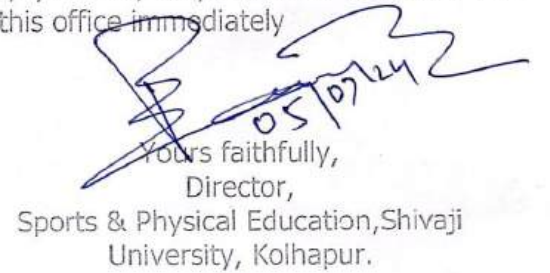 this office immediately
05/07/24
Yours faithfully,
Director,
Sports & Physical Education,Shivaji
University, Kolhapur.